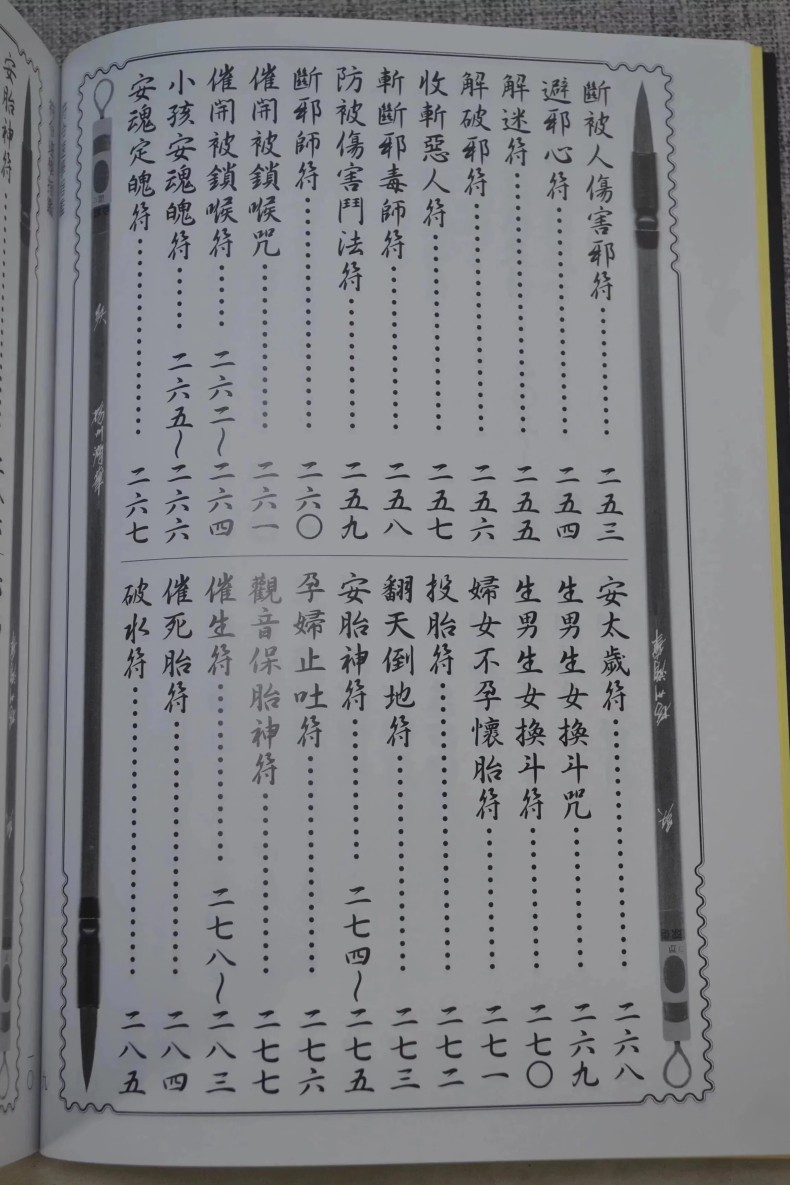 斷被人傷害邪符……………二五三
避邪心符……………二五四
解迷符……………二五五
解破邪符……………二五六
收斬惡人符……………二五七
斬斷邪毒師符……………二五八
防被傷害鬥法符……………二五九
斷邪師符……………二六〇
催開被鎖喉咒……………二六一
催開被鎖喉符……二六二~二六四
小孩安魂魄符……二六五~二六六
安魂定魄符……………二六七
安太歲符……………二六八
生男生女換斗咒……………二六九
生男生女換斗符……………二七〇
婦女不孕懷胎符……………二七一
投胎符……………二七二
翻天倒地符……………二七三
安胎神符……………二七四~二七五
孕婦止吐符……………二七六
觀音保胎神符……………二七七
催生符……………二七八~二八三
催死胎符……………二八四
破水符……………二八五
安胎神符……………